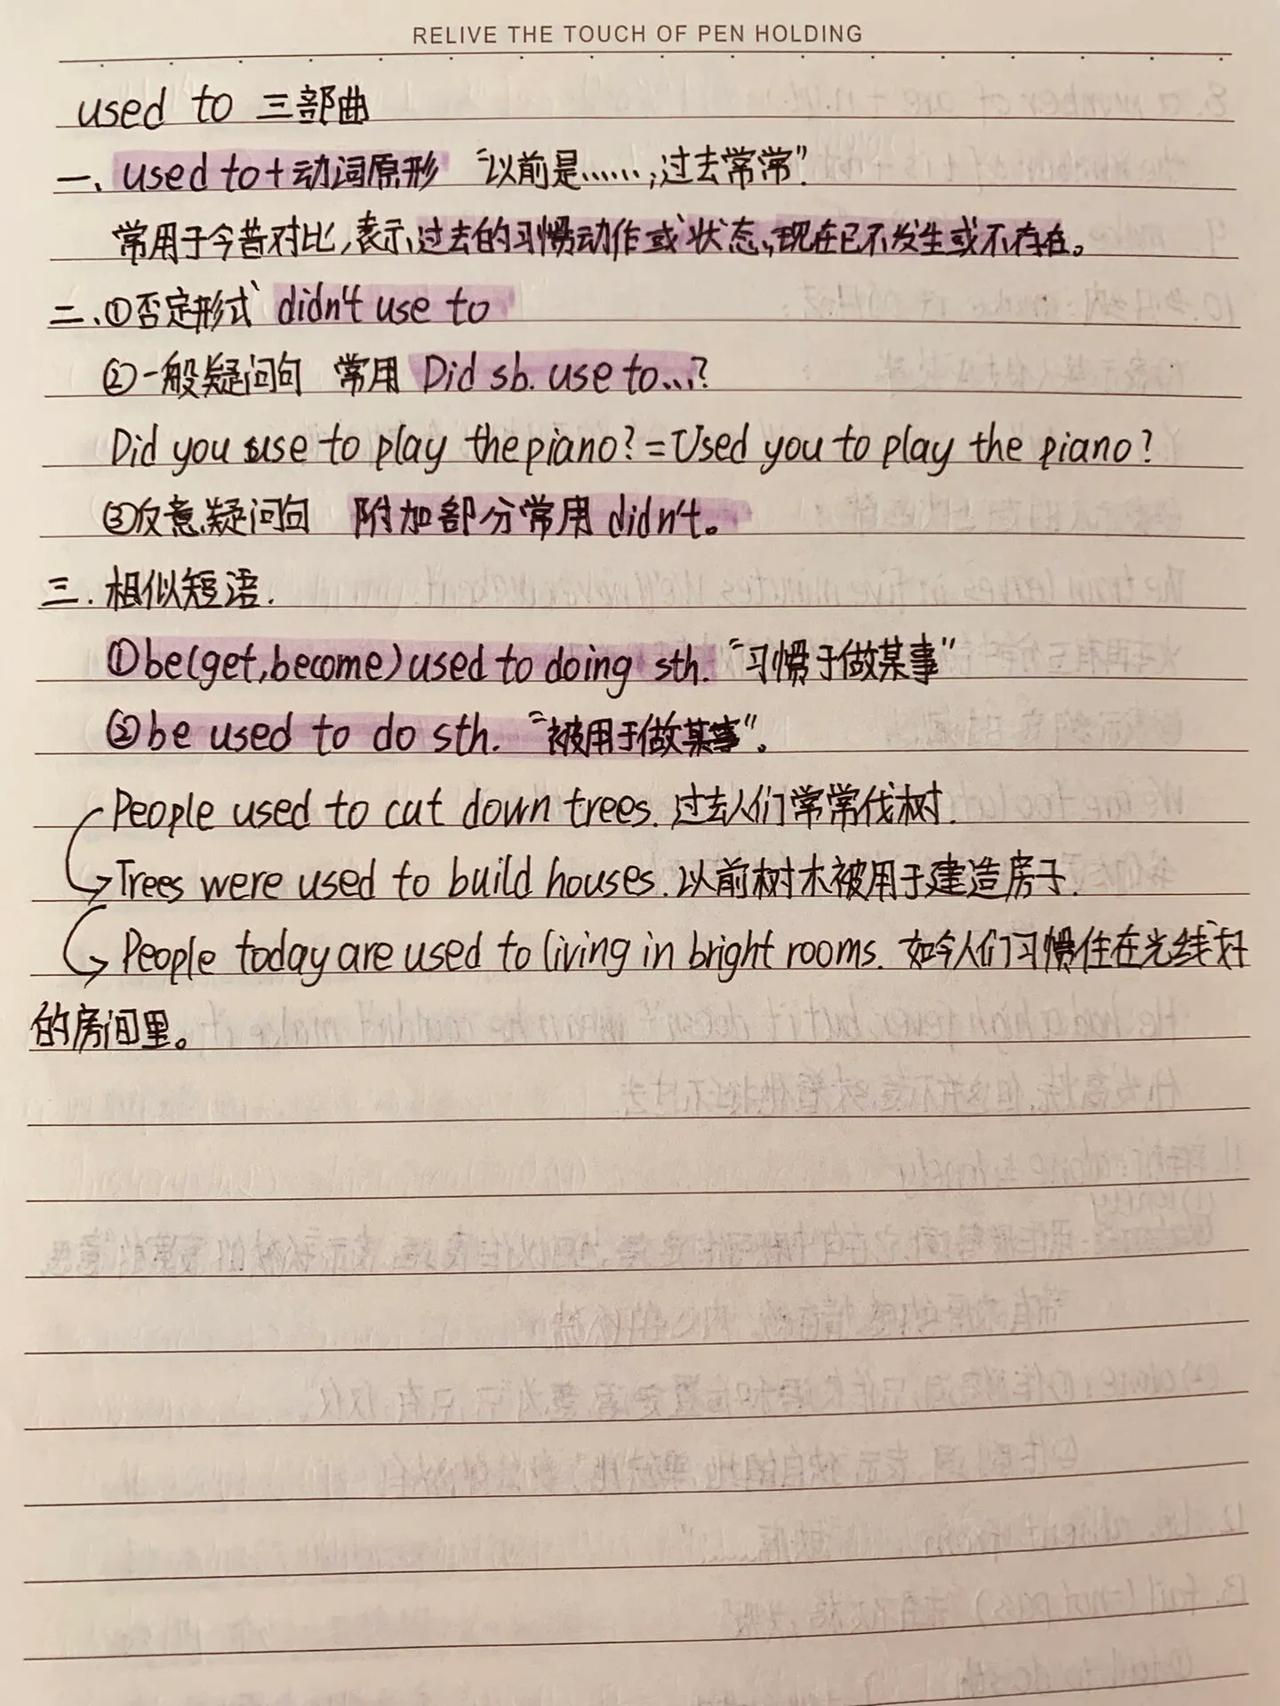 RELIVE THE TOUCH OF PEN HOLDING
used to 三部曲
一、used to+动词原形 “以前是……,过去常常”
常用于今昔对比,表示过去的习惯动作或状态,现在已不发生或不存在。
二、①否定形式 didn't use to
②一般疑问句 常用 Did sb. use to...?
Did you use to play the piano?=Used you to play the piano?
③反意疑问句 附加部分常用 didn't。
三.相似短语.
①be(get,become)used to doing sth. “习惯于做某事”
②be used to do sth. “被用于做某事”。
People used to cut down trees. 过去人们常常伐树.
Trees were used to build houses. 以前树木被用于建造房子.
People today are used to living in bright rooms. 如今人们习惯住在光线好
的房间里。